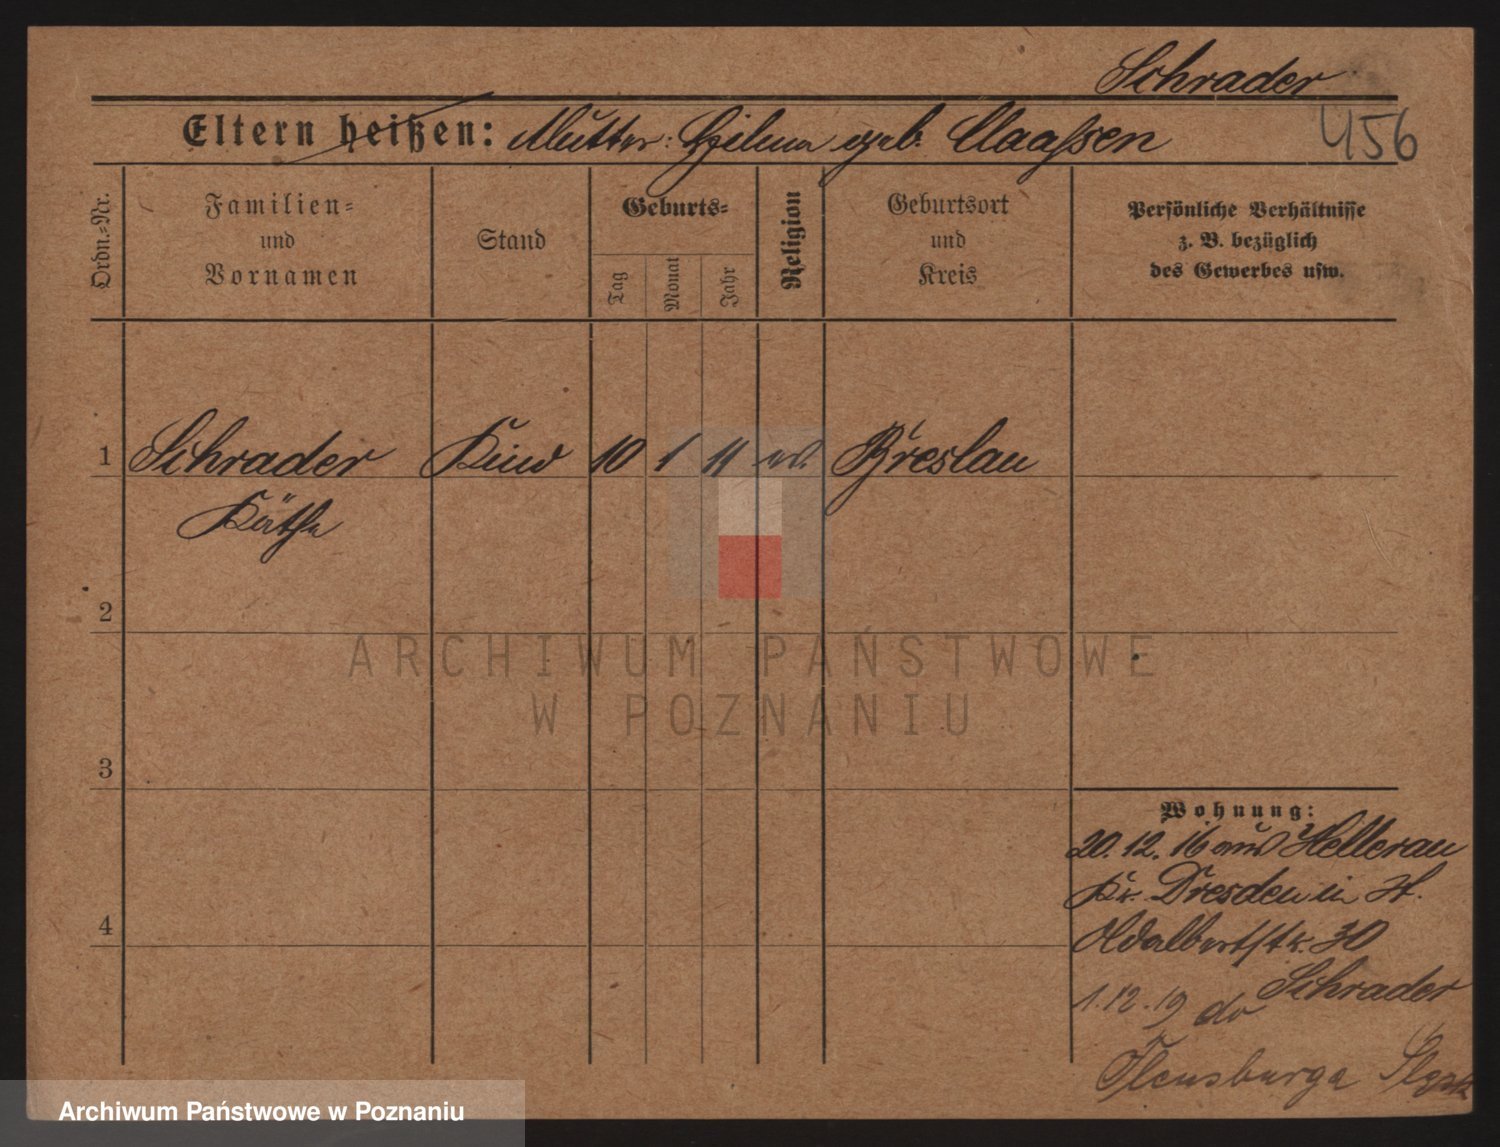 Schrader
Eltern heißen: Mutter: geb. Claaßen
456
Ordn.-Nr.
Familien-
und
Vornamen
Stand
Geburts-
Tag
Monat
Jahr
Religion
Geburtsort
und
Kreis
Persönliche Verhältnisse
z. B. bezüglich
des Gewerbes usw.
1 Schrader Kind 10 1 11 ev. Breslau
Käthe
2
3
4
Wohnung:
20.12.16 aus Hellerau
Kr. Dresden in H.
Adalbertstr. 30
Schrader
1.12.19 do
Flensburga
ARCHIWUM PAŃSTWOWE
W POZNANIU
Archiwum Państwowe w Poznaniu